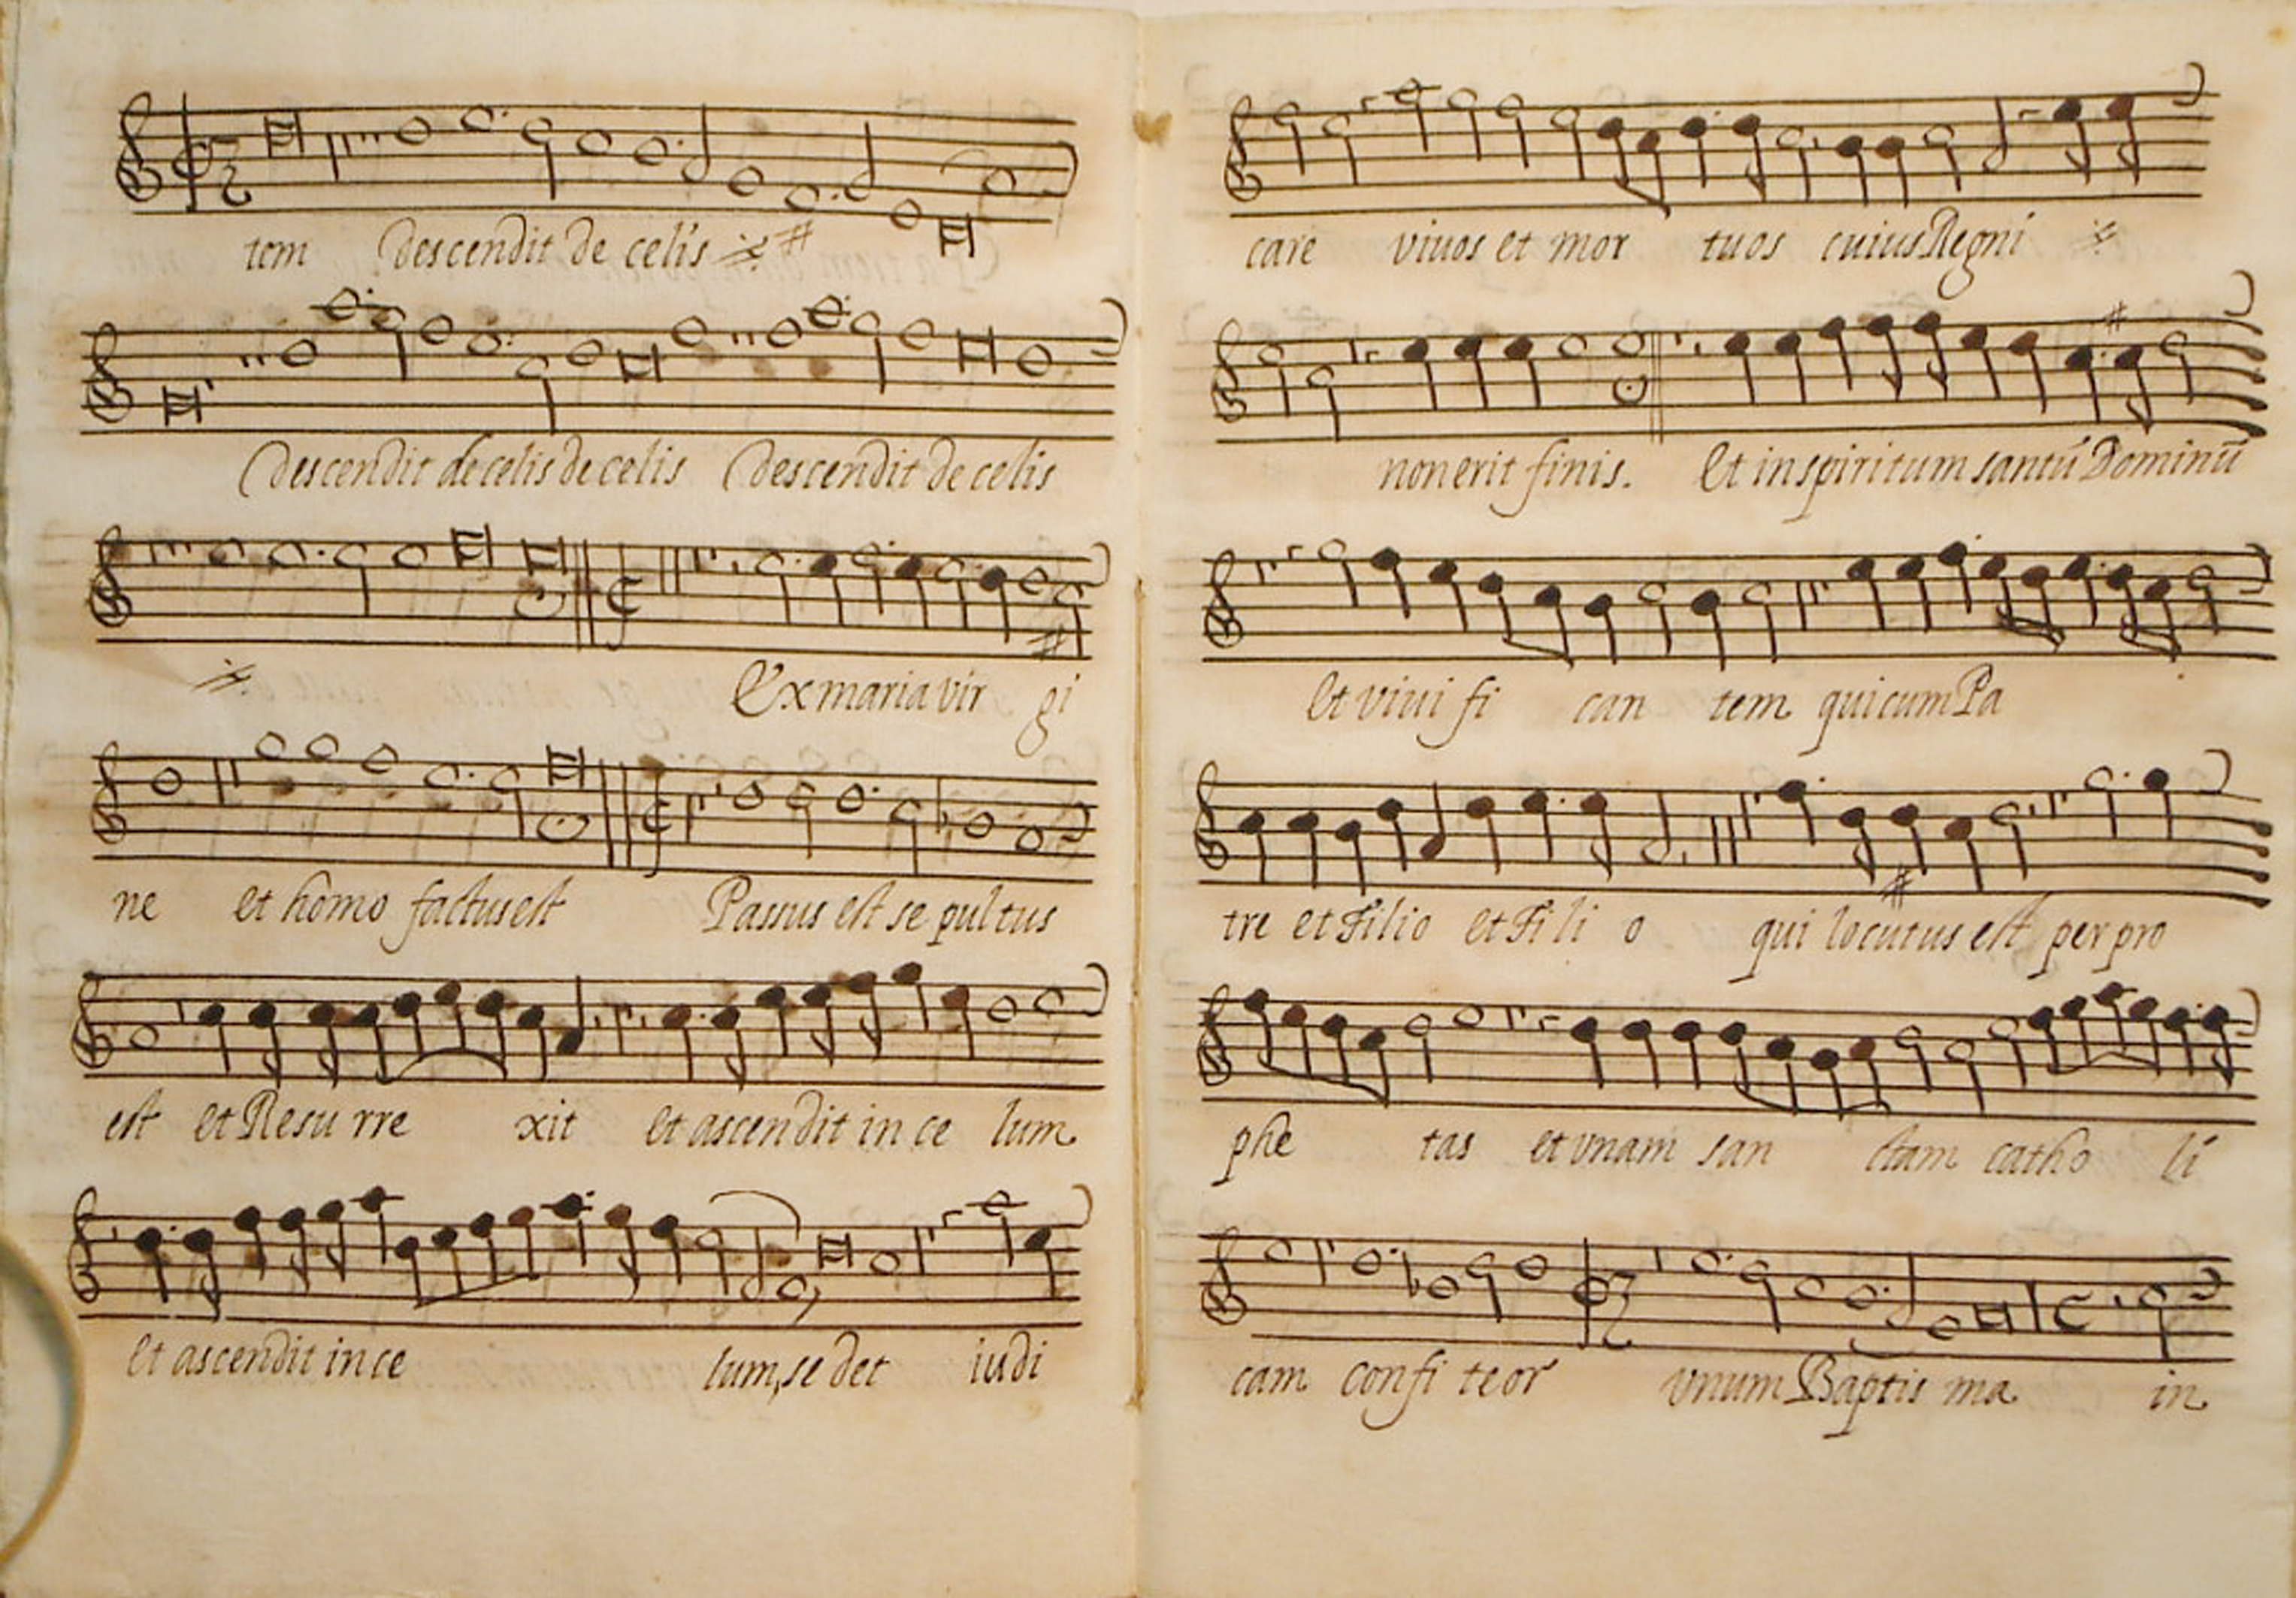 tem descendit de celis
Descendit de celis de celis Descendit de celis
Ex maria vir gi
ne et homo factus est Passus est se pultus
est et Resu rre xit et ascendit in ce lum
et ascendit in ce lum, se det iudi
care viuos et mor tuos cuius Regni
non erit finis. Et in spiritum santũ Dominũ
et viui fi can tem qui cum Pa
tre et Filio et Fi li o qui locutus est per pro
phe tas et vnam san ctam catho li
cam confi teor vnum Baptis ma in